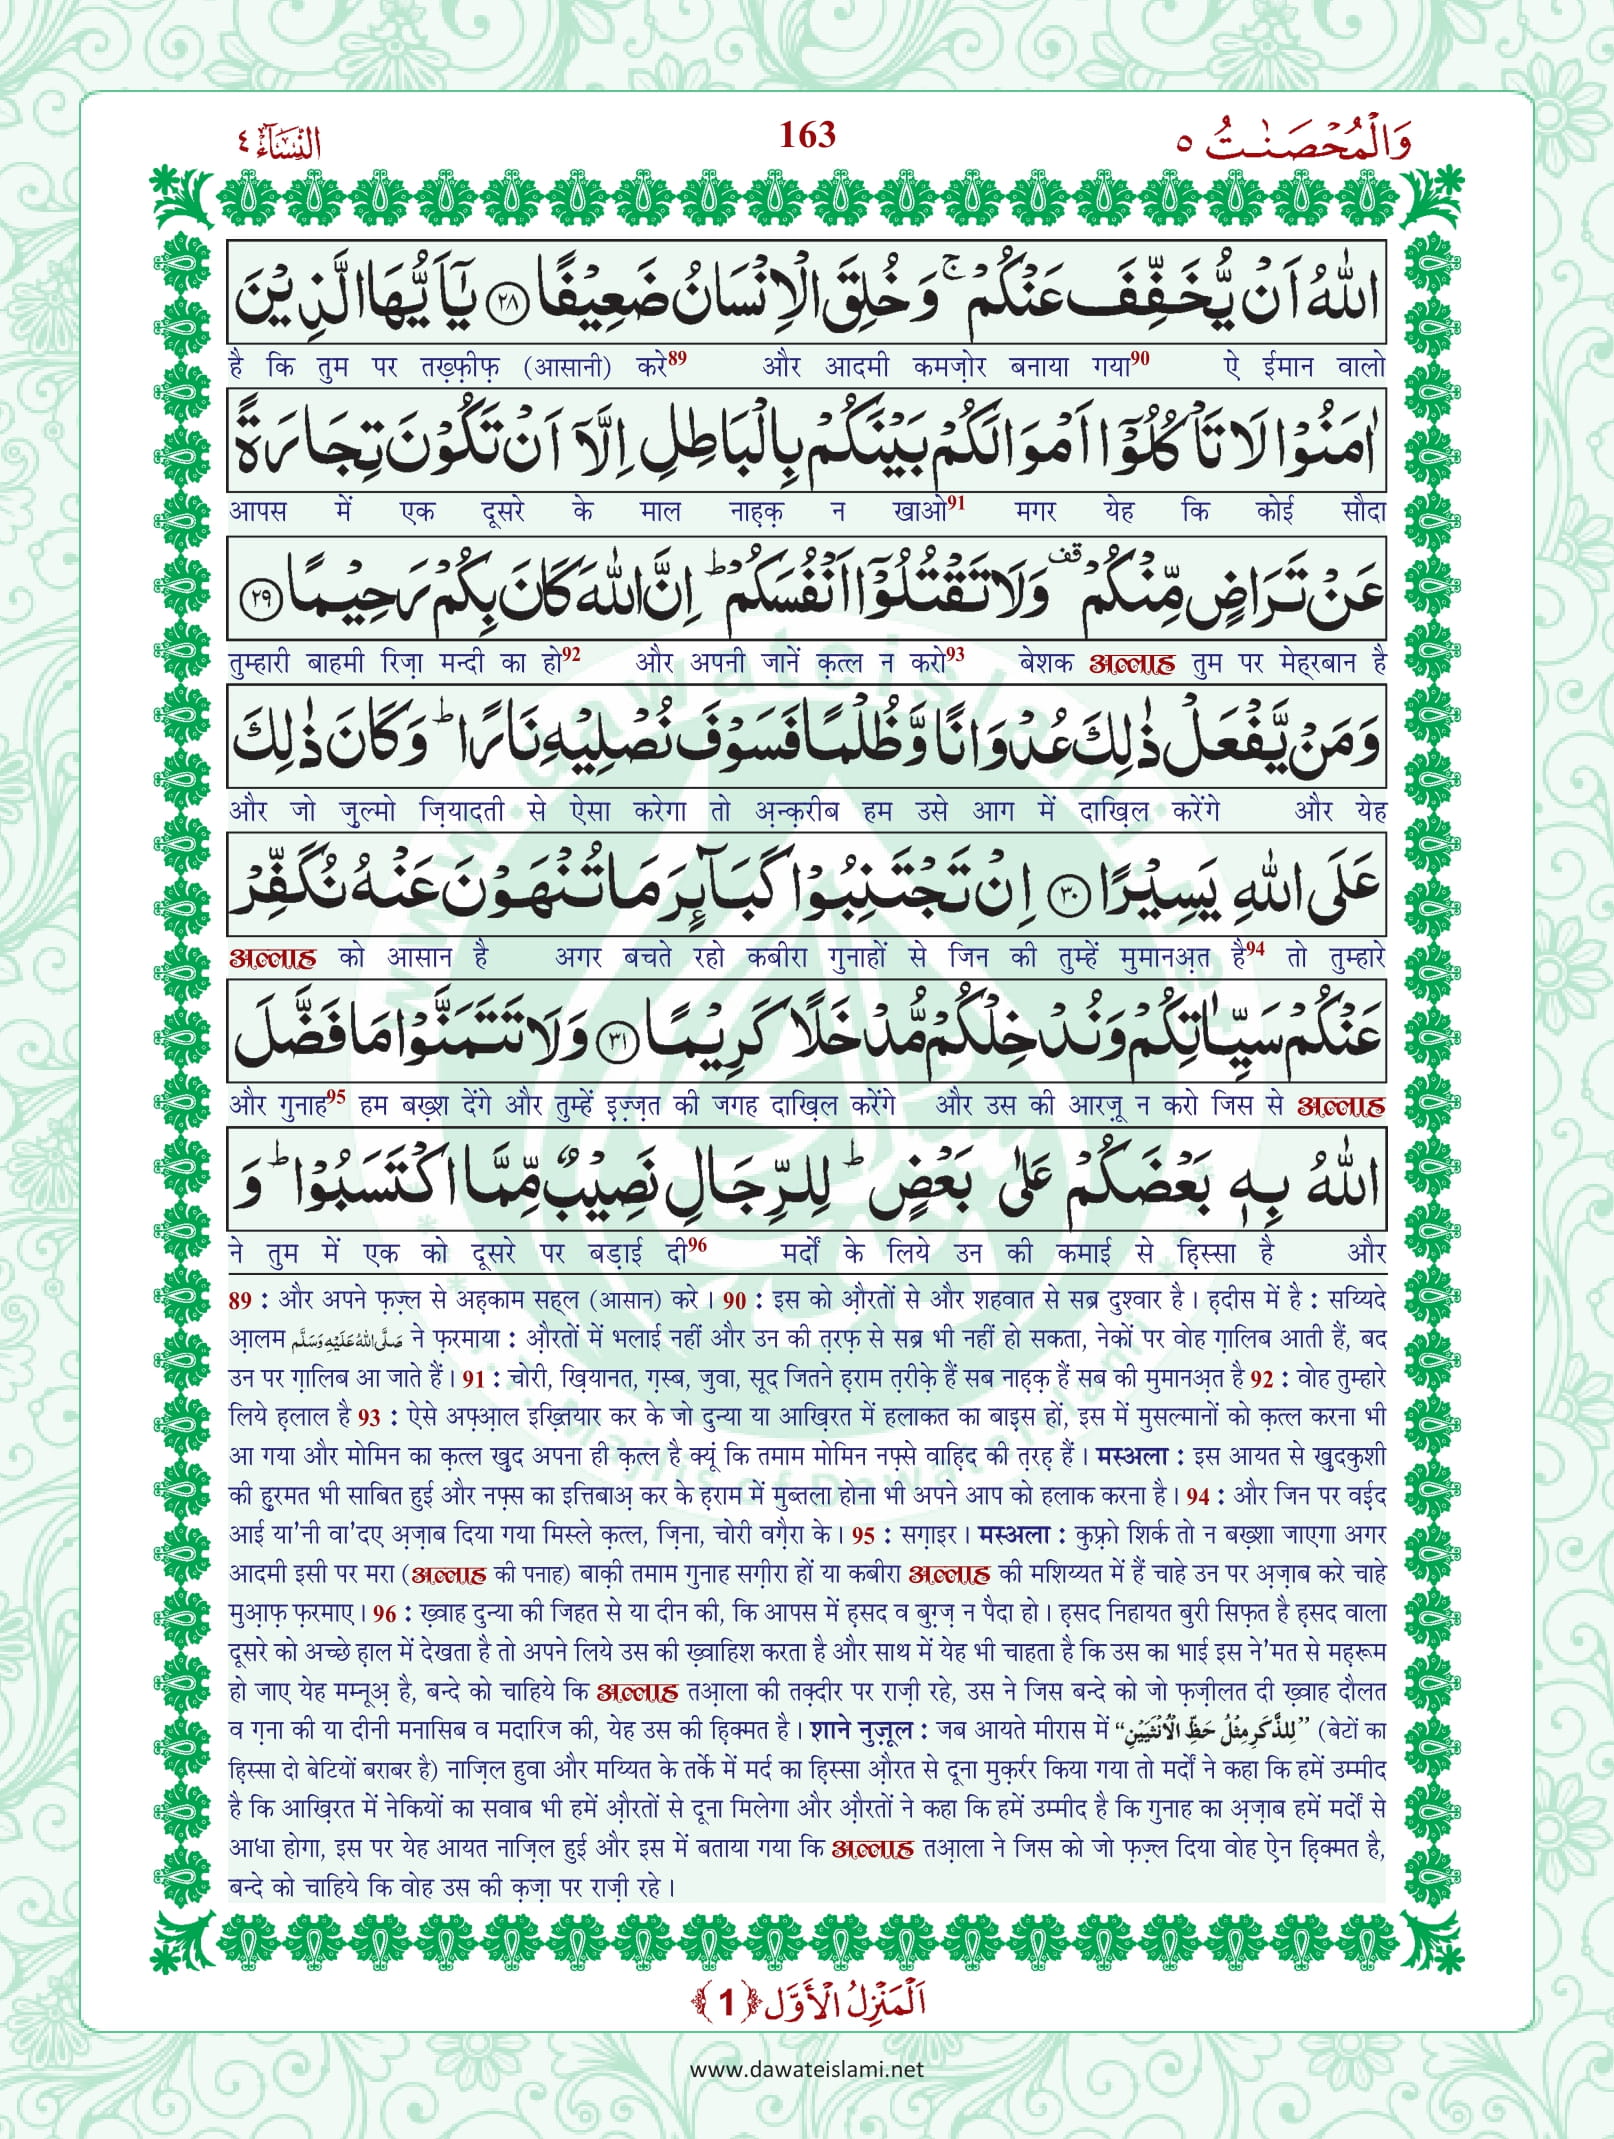 وَالْمُحْصَنٰتُ ٥ 163 النِّسَآءُ ٤
اللّٰهُ اَنْ يُّخَفِّفَ عَنْكُمْ ۚ وَخُلِقَ الْاِنْسَانُ ضَعِيْفًا ﴿٢٨﴾ يٰۤاَيُّهَا الَّذِيْنَ
है कि तुम पर तख़्फ़ीफ़ (आसानी) करे89 और आदमी कमज़ोर बनाया गया90 ऐ ईमान वालो
اٰمَنُوْا لَا تَاْكُلُوْۤا اَمْوَالَكُمْ بَيْنَكُمْ بِالْبَاطِلِ اِلَّاۤ اَنْ تَكُوْنَ تِجَارَةً
आपस में एक दूसरे के माल नाह़क़ न खाओ91 मगर येह कि कोई सौदा
عَنْ تَرَاضٍ مِّنْكُمْ ۟ قف وَلَا تَقْتُلُوْۤا اَنْفُسَكُمْ ؕ اِنَّ اللّٰهَ كَانَ بِكُمْ رَحِيْمًا ﴿٢٩﴾
तुम्हारी बाहमी रिज़ा मन्दी का हो92 और अपनी जानें क़त्ल न करो93 बेशक अल्लाह तुम पर मेह्रबान है
وَمَنْ يَّفْعَلْ ذٰلِكَ عُدْوَانًا وَّظُلْمًا فَسَوْفَ نُصْلِيْهِ نَارًا ؕ وَكَانَ ذٰلِكَ
और जो ज़ुल्मो ज़ियादती से ऐसा करेगा तो अ़न्क़रीब हम उसे आग में दाख़िल करेंगे और येह
عَلَى اللّٰهِ يَسِيْرًا ﴿٣٠﴾ اِنْ تَجْتَنِبُوْا كَبَآئِرَ مَا تُنْهَوْنَ عَنْهُ نُكَفِّرْ
अल्लाह को आसान है अगर बचते रहो कबीरा गुनाहों से जिन की तुम्हें मुमानअ़त है94 तो तुम्हारे
عَنْكُمْ سَيِّاٰتِكُمْ وَنُدْخِلْكُمْ مُّدْخَلًا كَرِيْمًا ﴿٣١﴾ وَلَا تَتَمَنَّوْا مَا فَضَّلَ
और गुनाह95 हम बख़्श देंगे और तुम्हें इ़ज़्ज़त की जगह दाख़िल करेंगे और उस की आरज़ू न करो जिस से अल्लाह
اللّٰهُ بِهٖ بَعْضَكُمْ عَلٰى بَعْضٍ ؕ لِلرِّجَالِ نَصِيْبٌ مِّمَّا اكْتَسَبُوْا ؕ وَ
ने तुम में एक को दूसरे पर बड़ाई दी96 मर्दों के लिये उन की कमाई से ह़िस्सा है और
89 : और अपने फ़ज़्ल से अह़काम सह्ल (आसान) करे । 90 : इस को औ़रतों से और शहवात से सब्र दुश्वार है । ह़दीस में है : सय्यिदे
आ़लम صَلَّى اللهُ عَلَيْهِ وَسَلَّم ने फ़रमाया : औ़रतों में भलाई नहीं और उन की त़रफ़ से सब्र भी नहीं हो सकता, नेकों पर वोह ग़ालिब आती हैं, बद
उन पर ग़ालिब आ जाते हैं । 91 : चोरी, ख़ियानत, ग़स्ब, जुवा, सूद जितने ह़राम त़रीक़े हैं सब नाह़क़ हैं सब की मुमानअ़त है 92 : वोह तुम्हारे
लिये ह़लाल है 93 : ऐसे अफ़्आ़ल इख़्तियार कर के जो दुन्या या आख़िरत में हलाकत का बाइ़स हों, इस में मुसल्मानों को क़त्ल करना भी
आ गया और मोमिन का क़त्ल ख़ुद अपना ही क़त्ल है क्यूं कि तमाम मोमिन नफ़्से वाह़िद की त़रह़ हैं । मस्अला : इस आयत से ख़ुदकुशी
की ह़ुरमत भी साबित हुई और नफ़्स का इत्तिबाअ़ कर के ह़राम में मुब्तला होना भी अपने आप को हलाक करना है । 94 : और जिन पर वई़द
आई या'नी वा'दए अ़ज़ाब दिया गया मिस्ले क़त्ल, ज़िना, चोरी वग़ैरा के । 95 : सग़ाइर । मस्अला : कुफ़्रो शिर्क तो न बख़्शा जाएगा अगर
आदमी इसी पर मरा (अल्लाह की पनाह) बाक़ी तमाम गुनाह सग़ीरा हों या कबीरा अल्लाह की मशिय्यत में हैं चाहे उन पर अ़ज़ाब करे चाहे
मुआ़फ़ फ़रमाए । 96 : ख़्वाह दुन्या की जिहत से या दीन की, कि आपस में ह़सद व बुग़्ज़ न पैदा हो । ह़सद निहायत बुरी सिफ़त है ह़सद वाला
दूसरे को अच्छे ह़ाल में देखता है तो अपने लिये उस की ख़्वाहिश करता है और साथ में येह भी चाहता है कि उस का भाई इस ने'मत से मह़रूम
हो जाए येह मम्नूअ़ है, बन्दे को चाहिये कि अल्लाह तआ़ला की तक़्दीर पर राज़ी रहे, उस ने जिस बन्दे को जो फ़ज़ीलत दी ख़्वाह दौलत
व ग़ना की या दीनी मनासिब व मदारिज की, येह उस की ह़िक्मत है । शाने नुज़ूल : जब आयते मीरास में ”لِلذَّكَرِ مِثْلُ حَظِّ الْاُنْثَيَيْنِ“ (बेटों का
ह़िस्सा दो बेटियों बराबर है) नाज़िल हुवा और मय्यित के तर्के में मर्द का ह़िस्सा औ़रत से दूना मुक़र्रर किया गया तो मर्दों ने कहा कि हमें उम्मीद
है कि आख़िरत में नेकियों का सवाब भी हमें औ़रतों से दूना मिलेगा और औ़रतों ने कहा कि हमें उम्मीद है कि गुनाह का अ़ज़ाब हमें मर्दों से
आधा होगा, इस पर येह आयत नाज़िल हुई और इस में बताया गया कि अल्लाह तआ़ला ने जिस को जो फ़ज़्ल दिया वोह ऐ़न ह़िक्मत है,
बन्दे को चाहिये कि वोह उस की क़ज़ा पर राज़ी रहे ।
اَلْمَنْزِلُ الْاَوَّل ﴿1﴾
www.dawateislami.net